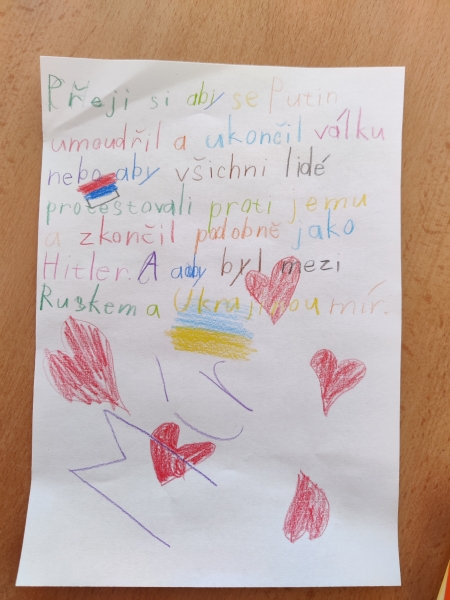 Přeji si aby se Putin
umoudřil a ukončil válku
nebo aby všichni lidé
protestovali proti jemu
a zkončil podobně jako
Hitler. A aby byl mezi
Ruskem a Ukrajinou mír.
Mír